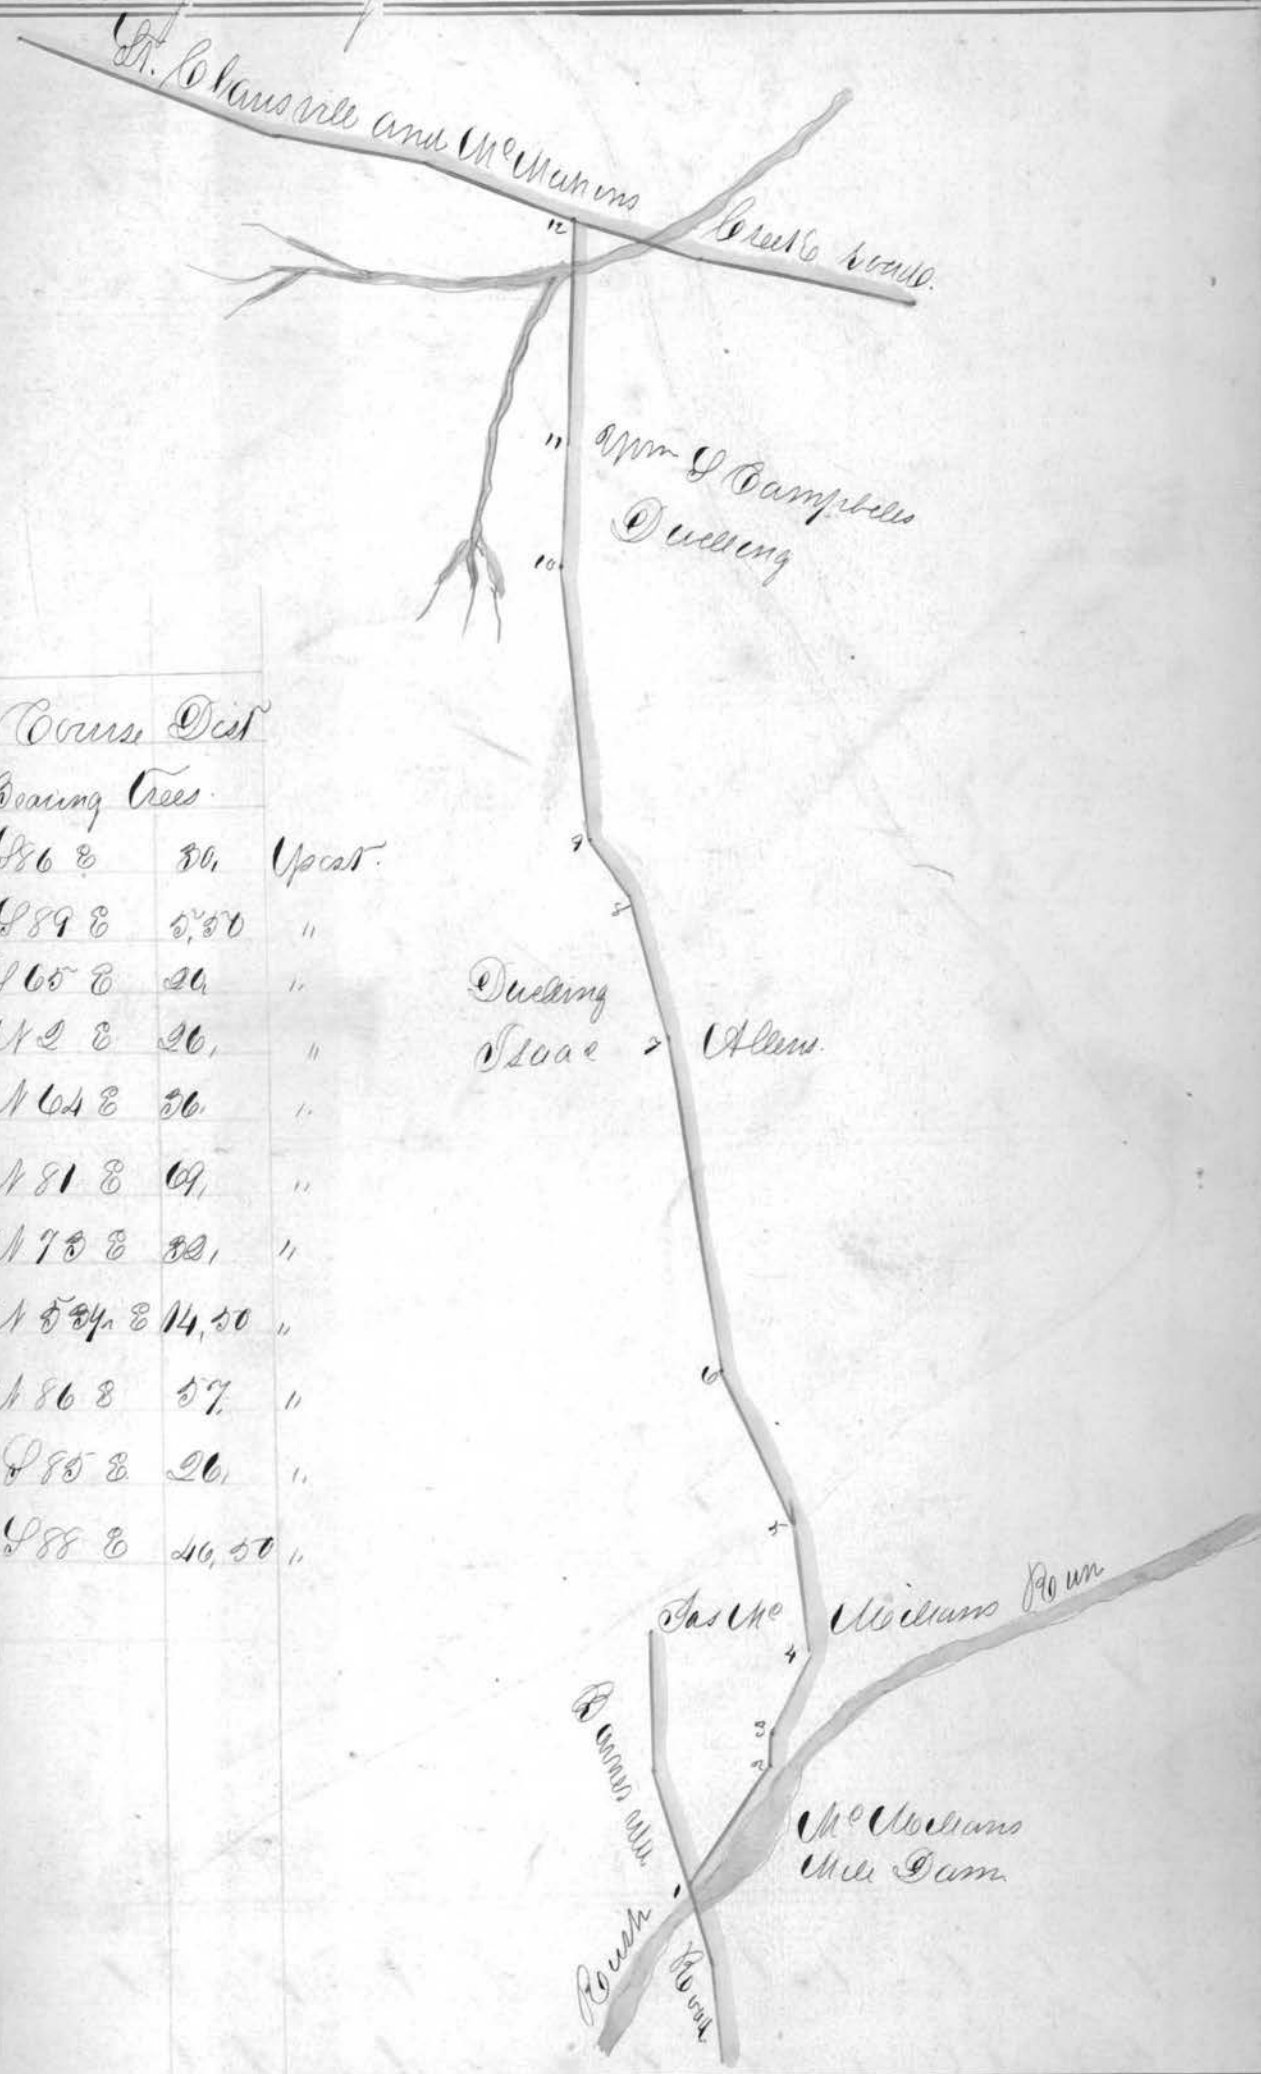 St. Clairsville and McMahons
Creek Road.
12
11
Wm S Campbells
Dwelling
10
Course Dist
Bearing Trees.
S 86 E 30, Upcst.
S 89 E 5,50 "
S 65 E 20, "
N 2 E 26, "
N 64 E 36. "
N 81 E 69, "
N 73 E 32, "
N 53½ E 14,50 "
N 86 E 57, "
S 85 E 26, "
S 88 E 46,50 "
9
8
Dwelling
Isaac 7 Allens.
6
5
Jas Mc Millians Run
4
3
2
Barnesville
McMillans
Mill Dam
1
Rush
Road